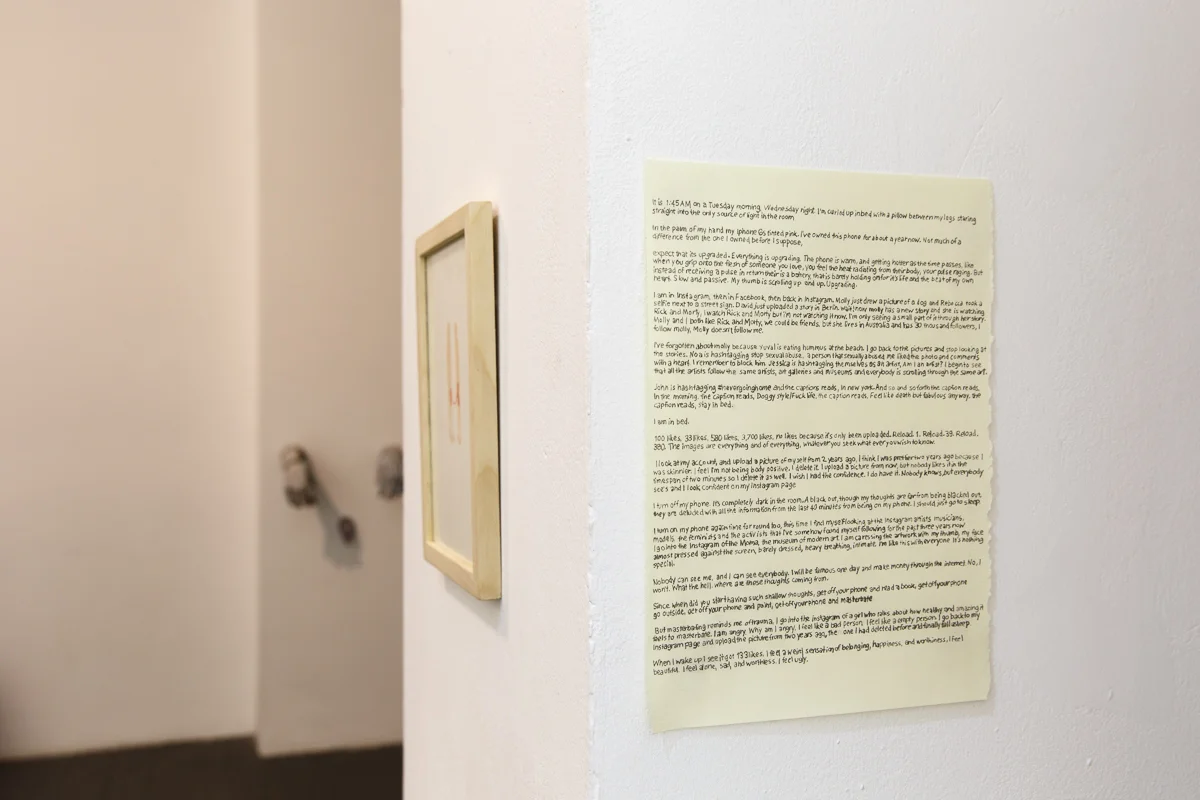 It is 1:45AM on a Tuesday morning, Wednesday night. I'm curled up in bed with a pillow between my legs staring
straight into the only source of light in the room
In the palm of my hand my iphone 6s tinted pink. I've owned this phone for about a year now. Not much of a
difference from the one I owned before I suppose,
expect that its upgraded. Everything is upgrading. The phone is warm, and getting hotter as the time passes, like
when you grip onto the flesh of someone you love, you feel the heat radiating from their body, your pulse raging. But
instead of receiving a pulse in return their is a battery, that is barely holding on for it's life and the beat of my own
heart. Slow and passive. My thumb is scrolling up and up. Upgrading.
I am in Instagram, then in Facebook, then back in Instagram. Molly just drew a picture of a dog and Rebecca took a
selfie next to a street sign. David just uploaded a story in Berlin. Wait now molly has a new story and she is watching
Rick and Morty, I watch Rick and Morty but I'm not watching it now, I'm only seeing a small part of it through her story.
Molly and I both like Rick and Morty, we could be friends, but she lives in Australia and has 30 thousand followers, I
follow molly, Molly doesn't follow me.
I've forgotten about molly because Yuval is eating hummus at the beach. I go back to the pictures and stop looking at
the stories. Noa is hashtagging stop sexual abuse, a person that sexually abused me liked the photo and comments
with a heart. I remember to block him. Jessika is hashtagging themselves as an artist, Am I an artist? I begin to see
that all the artists follow the same artists, art galleries and museums and everybody is scrolling through the same art.
John is hashtagging #nevergoinghome and the captions reads, In new york. And so and so forth the caption reads,
In the morning, the caption reads, Doggy style/Fuck life, the caption reads. Feel like death but fabulous anyway, the
caption reads, stay in bed.
I am in bed.
100 likes, 33 likes, 580 likes, 3,700 likes, no likes because it's only been uploaded. Reload. 1. Reload. 39. Reload.
380. The images are everything and of everything, whatever you seek what ever you wish to know.
I look at my account, and upload a picture of myself from 2 years ago, I think I was prettier two years ago because I
was skinnier. I feel I'm not being body positive. I delete it. I upload a picture from now, but nobody likes it in the
timespan of two minutes so I delete it as well. I wish I had the confidence. I do have it. Nobody knows, but everybody
see's and I look confident on my Instagram page
I turn off my phone. Its completely dark in the room. A black out, though my thoughts are far from being blacked out,
they are deluded with all the information from the last 40 minutes from being on my phone. I should just go to sleep
I turn on my phone again time for round too, this time I find myself looking at the Instagram artists, musicians,
models, the feminists and the activists that I've somehow found myself following for the past three years now
I go into the Instagram of the Moma, the museum of modern art. I am caressing the artwork with my thumb, my face
almost pressed against the screen, barely dressed, heavy breathing, intimate. I'm like this with everyone It's nothing
special.
Nobody can see me, and I can see everybody. I will be famous one day and make money through the internet. No, I
won't. What the hell, where are these thoughts coming from.
Since when did you start having such shallow thoughts, get off your phone and read a book, get off your phone
go outside, get off your phone and paint, get off your phone and masterbate
But masterbating reminds me of trauma, I go into the instagram of a girl who talks about how healthy and amazing it
feels to masterbate. I am angry. Why am I angry. I feel like a bad person, I feel like a empty person. I go back to my
Instagram page and upload the picture from two years ago, the one I had deleted before and finally fall asleep.
When I wake up I see it got 133 likes, I feel a weird sensation of belonging, happiness, and worthiness, I feel
beautiful. I feel alone, sad, and worthless. I feel ugly.